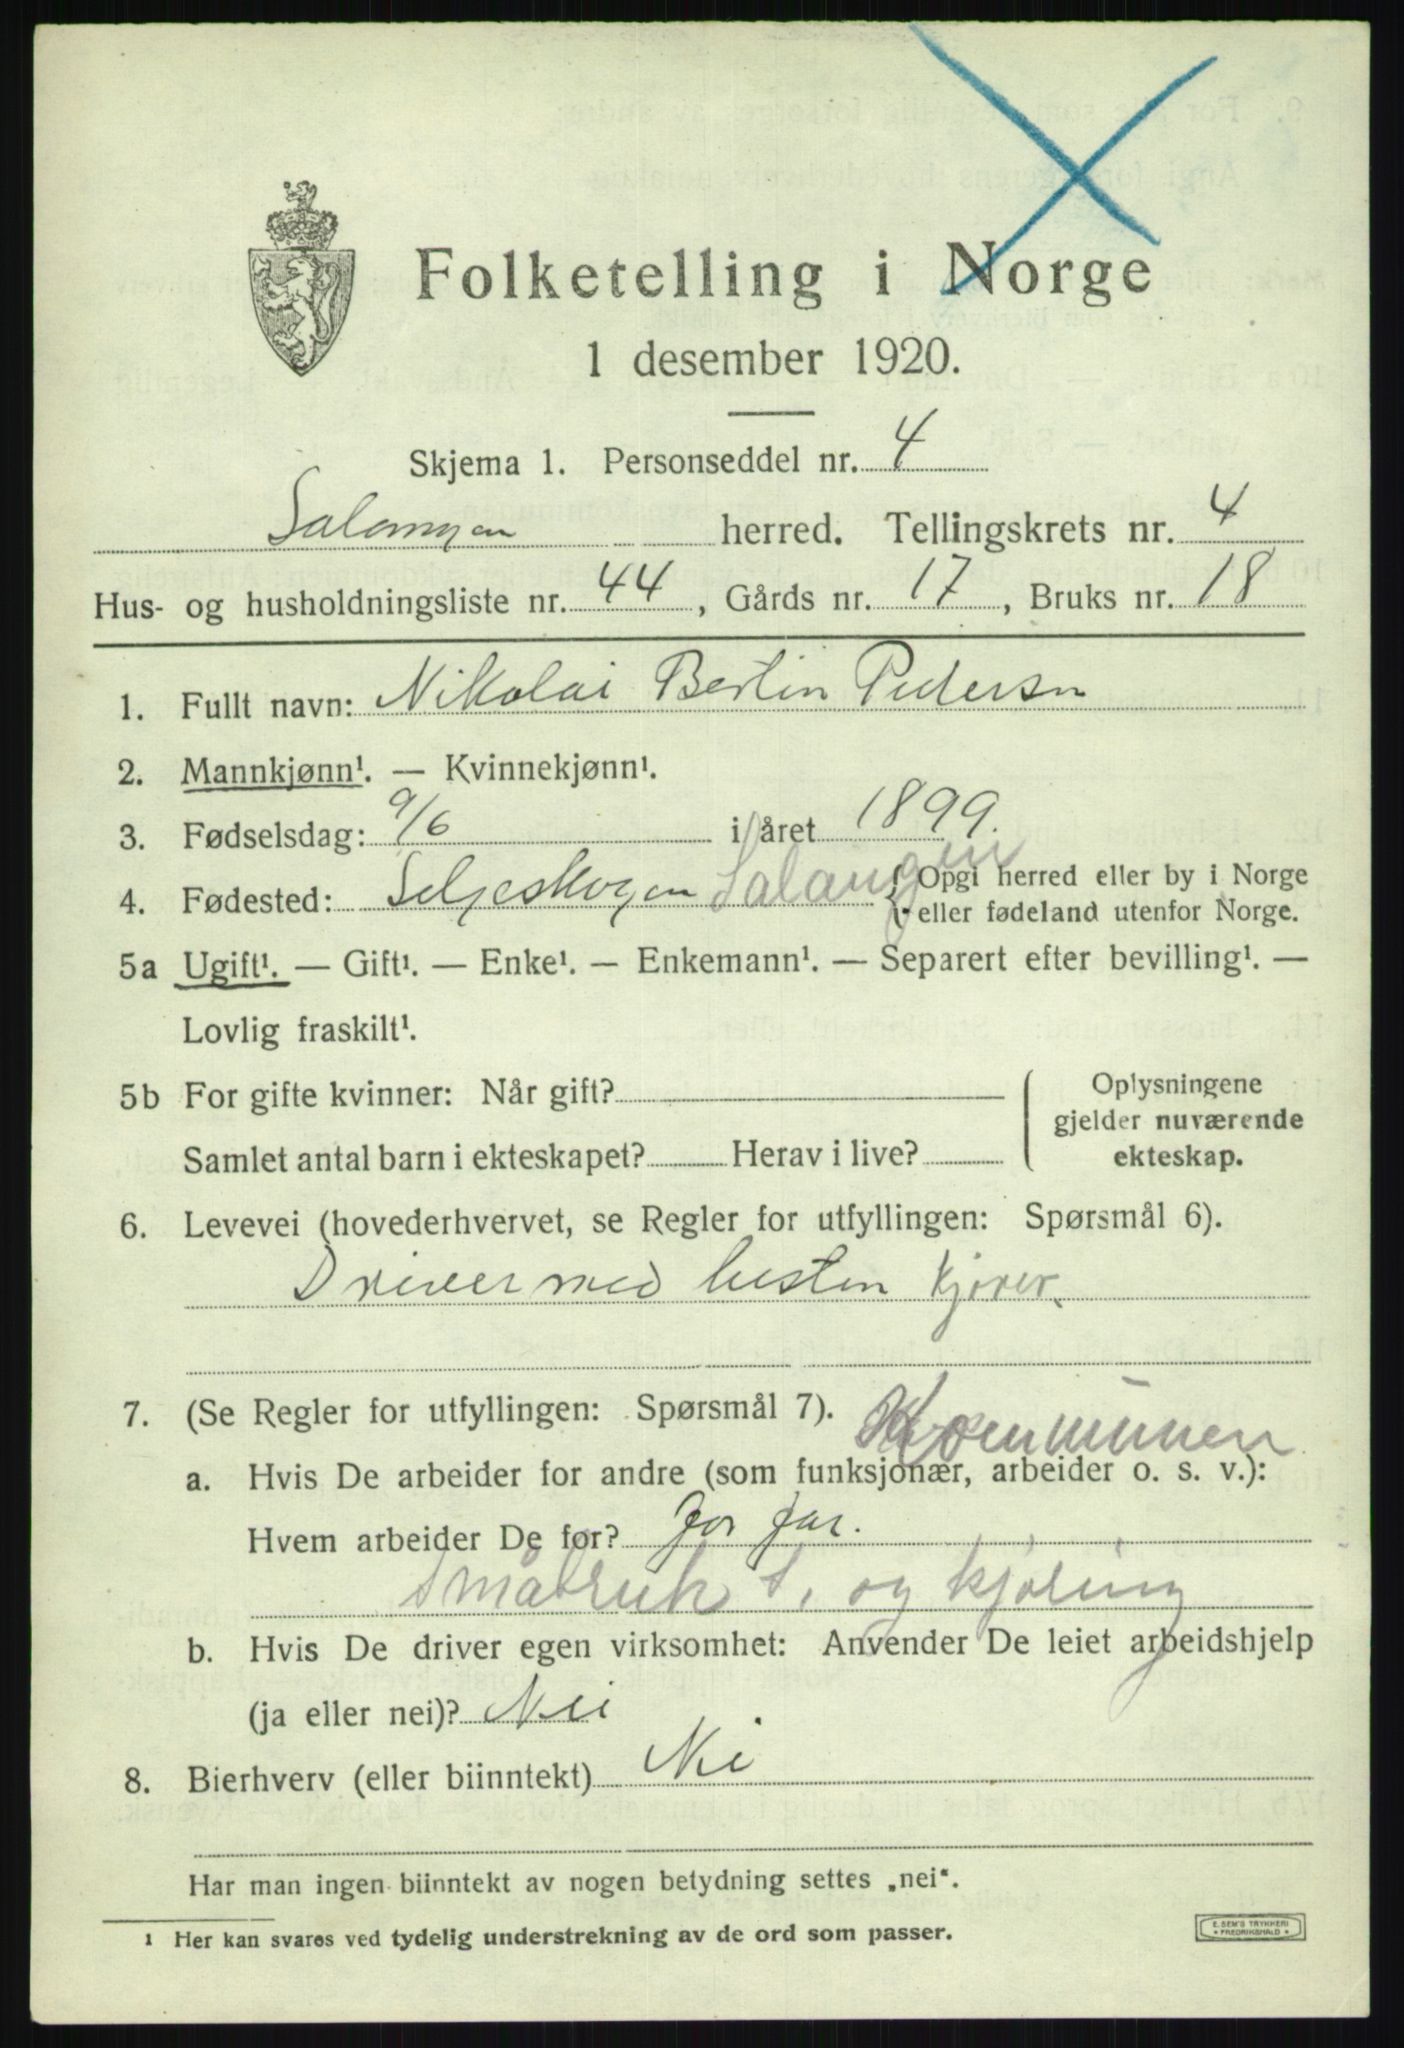 Folketelling i Norge
1 desember 1920.
Skjema 1. Personseddel nr. 4
Salangen herred. Tellingskrets nr. 4
Hus- og husholdningsliste nr. 44, Gårds nr. 17, Bruks nr. 18
1. Fullt navn: Nikolai Bertin Pedersen
2. Mannkjønn¹. — Kvinnekjønn¹.
3. Fødselsdag: 9/6 i året 1899.
4. Fødested: Seljeskogen Salangen { Opgi herred eller by i Norge
eller fødeland utenfor Norge.
5a Ugift¹. — Gift¹. — Enke¹. — Enkemann¹. — Separert efter bevilling¹. —
Lovlig fraskilt¹.
5b For gifte kvinner: Når gift?
Samlet antal barn i ekteskapet? Herav i live?
Oplysningene
gjelder nuværende
ekteskap.
6. Levevei (hovederhvervet, se Regler for utfyllingen: Spørsmål 6).
Driver med hesten kjører.
7. (Se Regler for utfyllingen: Spørsmål 7). Kommunen
a. Hvis De arbeider for andre (som funksjonær, arbeider o. s. v.):
Hvem arbeider De for? for far.
Småbruk s. og kjøring
b. Hvis De driver egen virksomhet: Anvender De leiet arbeidshjelp
(ja eller nei)? Nei
8. Bierhverv (eller biinntekt) Nei
Har man ingen biinntekt av nogen betydning settes „nei“.
¹ Her kan svares ved tydelig understrekning av de ord som passer.
E. SEM'S TRYKKERI
FREDRIKSHALD